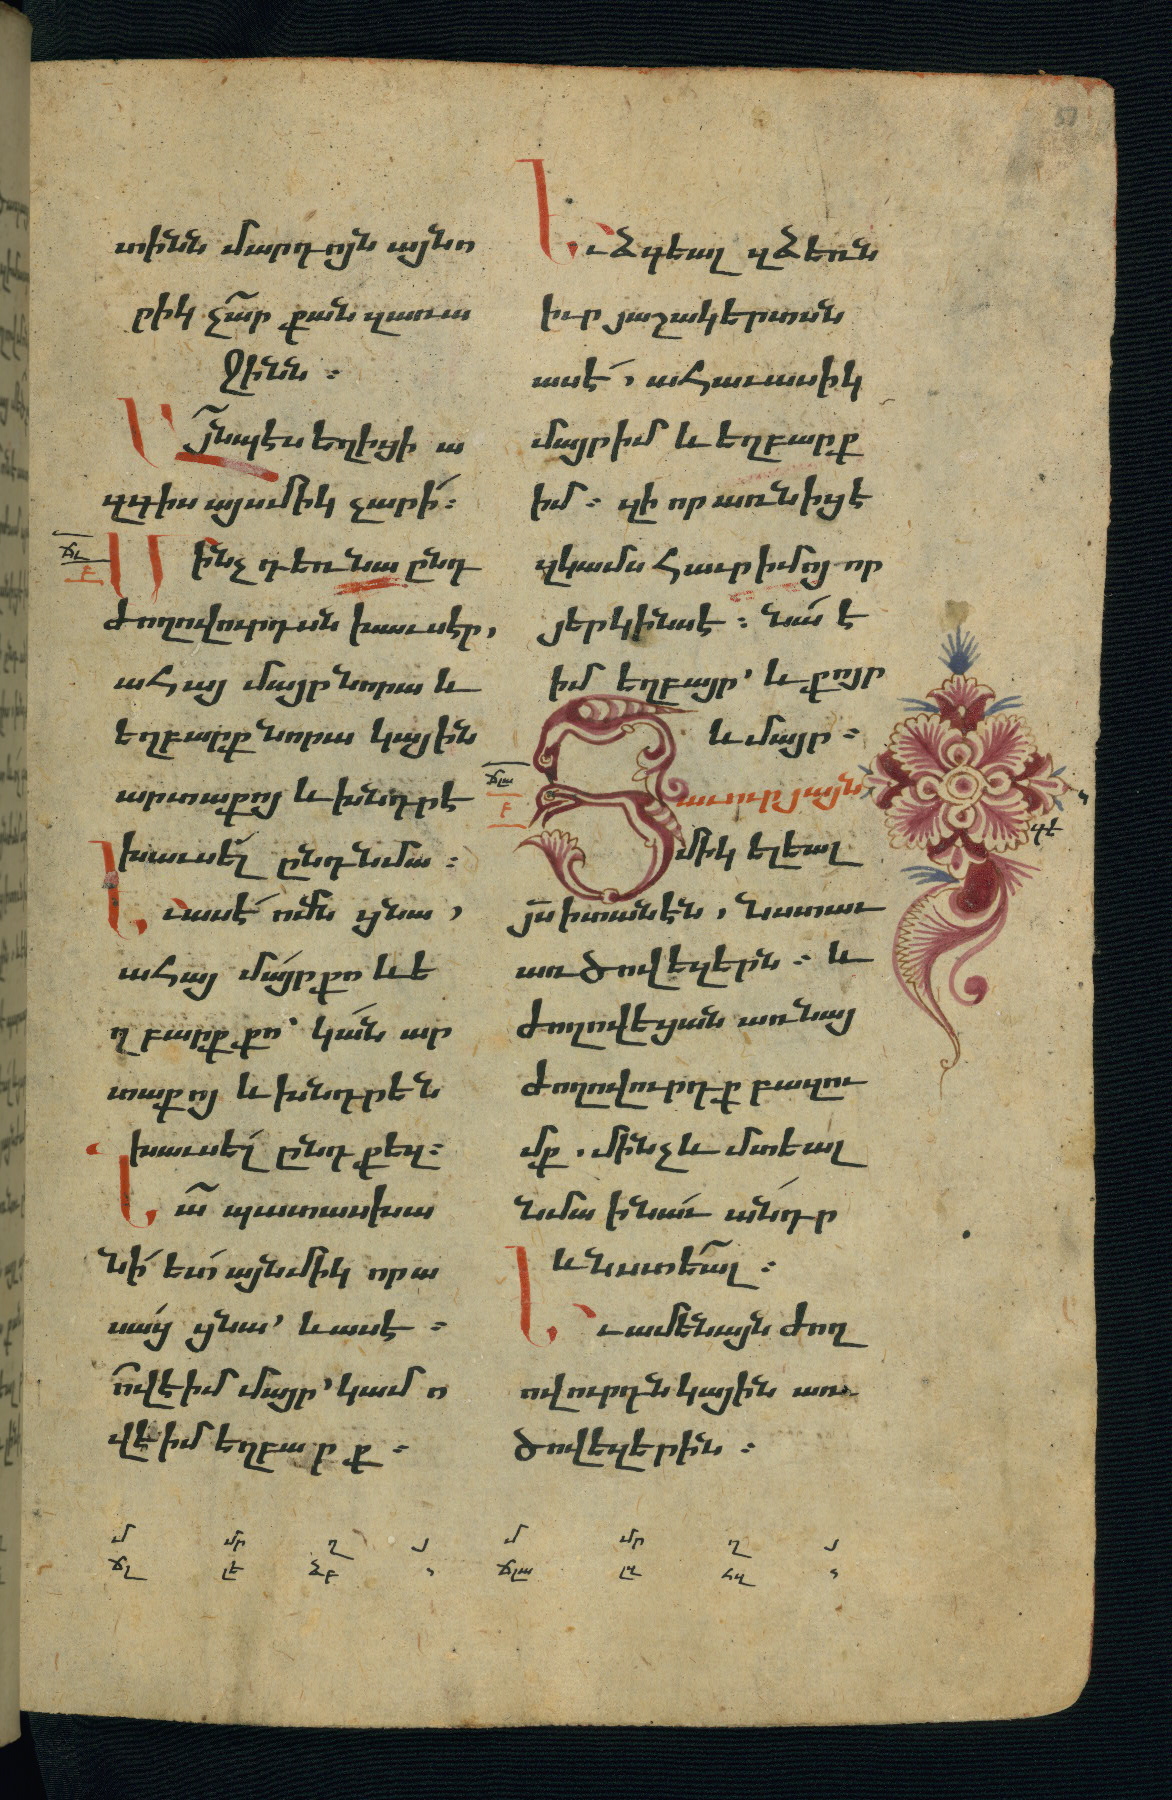 տինն մարդոյն այնո
ըիկ չա՟ր քան զառա
ջինն ։
Ա՟յնպէս եղիցի ա
զգիս այսմիկ չարի՛ ։
ճլ
բ
Մինչ դեռ նա ընդ
ժողովուրդսն խաւսէր,
ահայ մայր նորա և
եղբարք նորա կային
արտաքոյ և խնդրէ
խաւսել ընդ նմա ։
Եւ ասէ ոմն ցնա ,
ահայ մայր քո և ե
ղբարք քո՝ կան ար
տաքոյ և խնդրեն
խաւսել ընդ քեզ ։
Նա՟ պատասխա
նի՛ ետ այնմիկ որ ա
սացն ցնա՝ և ասէ ։
ո՟վ է իմ մայր՝ կամ ո
վ են իմ եղբարք ։
Եւ ձգեալ զձեռն
իւր յաշակերտսն
ասէ՛ , ահաւասիկ
մայր իմ և եղբարք
իմ ։ զի որ առնիցէ
զկամս հաւր իմոյ որ
յերկինսն է ։ նա՛ է
իմ եղբայր՝ և քոյր
և մայր ։
ճլա
բ
Յաւուր յայն
գէ
միկ ելեալ
յ՟ս ի տանէն , նստաւ
առ ծովեզերն ։ և
ժողովեցան առ նա
ժողովուրդք բազու
մք . մինչև մտեալ
նմա ի նաւ անդր
և նստե՟ալ ։
Եւ ամենայն ժող
ովուրդն կային առ
ծովեզերին ։
մ մր ղ յ մ մր ղ յ
ճլ լէ ձբ , ճլա լզ հզ ,